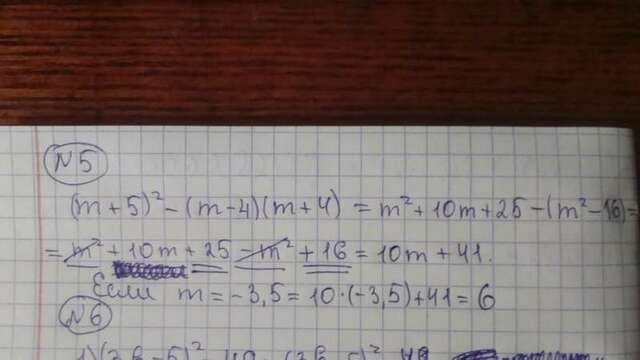 N5
(m+5)² - (m-4)(m+4) = m² + 10m + 25 - (m² - 16) =
= m² + 10m + 25 - m² + 16 = 10m + 41.
Если m = -3,5 = 10·(-3,5) + 41 = 6
N6